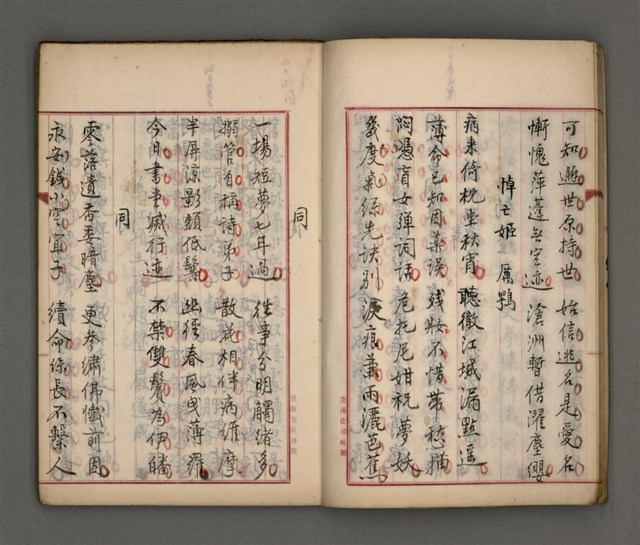 可知避世原持世　始信逃名是愛名
慚愧萍蓬無定迹　滄洲暫借濯塵纓
悼亡姬　厲鶚
病來倚枕坐秋宵　聽徹江城漏點遙
薄命已知因藥誤　殘妝不惜帶愁描
悶憑盲女彈詞話　危托尼姑祝夢妖
幾度氣絲先訣別　淚痕蕭雨灑芭蕉
同
一場短夢七年過　往事分明觸緒多
搦管自稱詩弟子　散花相伴病維摩
半屏涼影頹低鬢　幽徑春風曳薄羅
今日書行迹　不禁雙鬢為伊皤
同
零落遺香委暗塵　更參繡佛懺前因
永安錢小空宜子　續命絲長不繫人